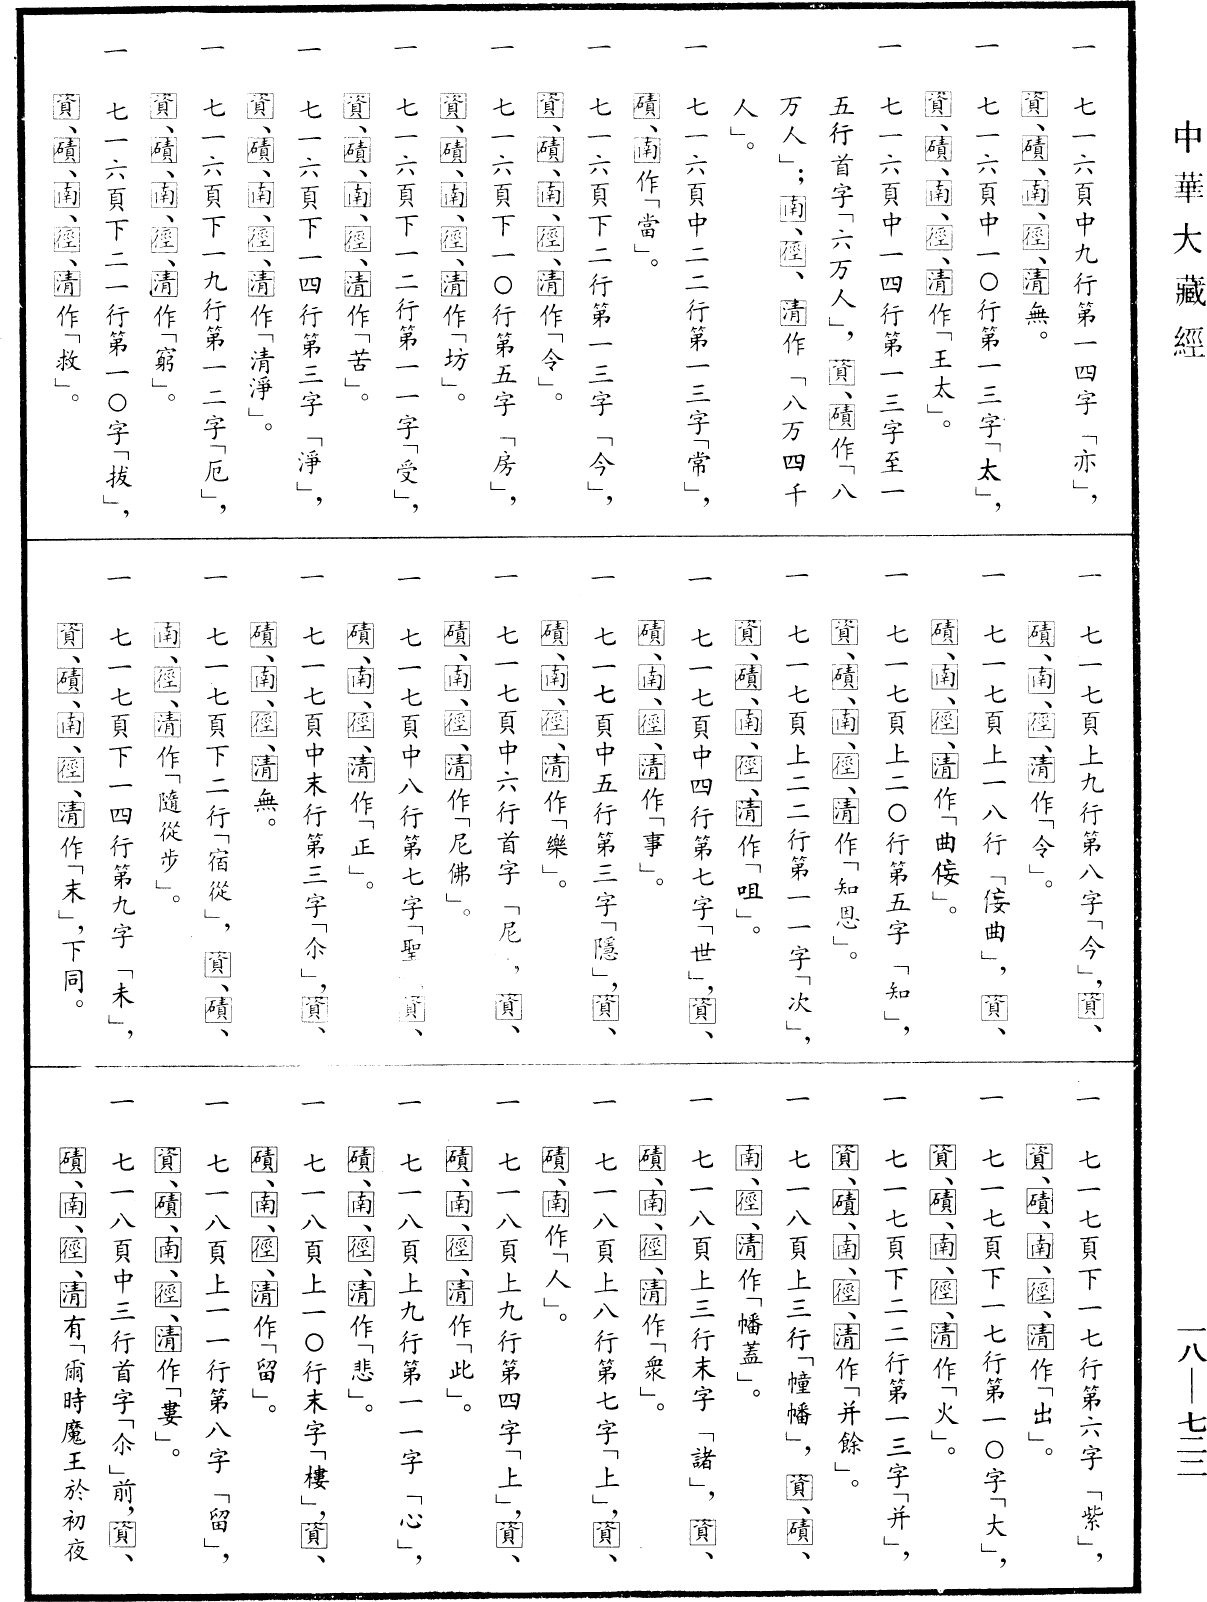 中華大藏經
一 七一六頁中九行第一四字「亦」，
資、磧、南、徑、清無。
一 七一六頁中一〇行第一三字「太」，
資、磧、南、徑、清作「王太」。
一 七一六頁中一四行第一三字至一
五行首字「六万人」，資、磧作「八
万人」；南、徑、清作「八万四千
人」。
一 七一六頁中二二行第一三字「常」，
磧、南作「當」。
一 七一六頁下二行第一三字「今」，
資、磧、南、徑、清作「令」。
一 七一六頁下一〇行第五字「房」，
資、磧、南、徑、清作「坊」。
一 七一六頁下一二行第一一字「受」，
資、磧、南、徑、清作「苦」。
一 七一六頁下一四行第三字「淨」，
資、磧、南、徑、清作「清淨」。
一 七一六頁下一九行第一二字「厄」，
資、磧、南、徑、清作「窮」。
一 七一六頁下二一行第一〇字「拔」，
資、磧、南、徑、清作「救」。
一 七一七頁上九行第八字「今」，資、
磧、南、徑、清作「令」。
一 七一七頁上一八行「侫曲」，資、
磧、南、徑、清作「曲侫」。
一 七一七頁上二〇行第五字「知」，
資、磧、南、徑、清作「知恩」。
一 七一七頁上二二行第一一字「次」，
資、磧、南、徑、清作「咀」。
一 七一七頁中四行第七字「世」，資、
磧、南、徑、清作「事」。
一 七一七頁中五行第三字「隱」，資、
磧、南、徑、清作「樂」。
一 七一七頁中六行首字「尼，資、
磧、南、徑、清作「尼佛」。
一 七一七頁中八行第七字「聖 資、
磧、南、徑、清作「正」。
一 七一七頁中末行第三字「尒」，資、
磧、南、徑、清無。
一 七一七頁下二行「宿從」，資、磧、
南、徑、清作「隨從步」。
一 七一七頁下一四行第九字「未」，
資、磧、南、徑、清作「末」，下同。
一 七一七頁下一七行第六字「紫」，
資、磧、南、徑、清作「出」。
一 七一七頁下一七行第一〇字「大」，
資、磧、南、徑、清作「火」。
一 七一七頁下二二行第一三字「并」，
資、磧、南、徑、清作「并餘」。
一 七一八頁上三行「幢幡」，資、磧、
南、徑、清作「幡蓋」。
一 七一八頁上三行末字「諸」，資、
磧、南、徑、清作「衆」。
一 七一八頁上八行第七字「上」，資、
磧、南作「人」。
一 七一八頁上九行第四字「上」，資、
磧、南、徑、清作「此」。
一 七一八頁上九行第一一字「心」，
磧、南、徑、清作「悲」。
一 七一八頁上一〇行末字「樓」，資、
磧、南、徑、清作「留」。
一 七一八頁上一一行第八字「留」，
資、磧、南、徑、清作「婁」。
一 七一八頁中三行首字「尒」前，資、
磧、南、徑、清有「爾時魔王於初夜
一八—七二二